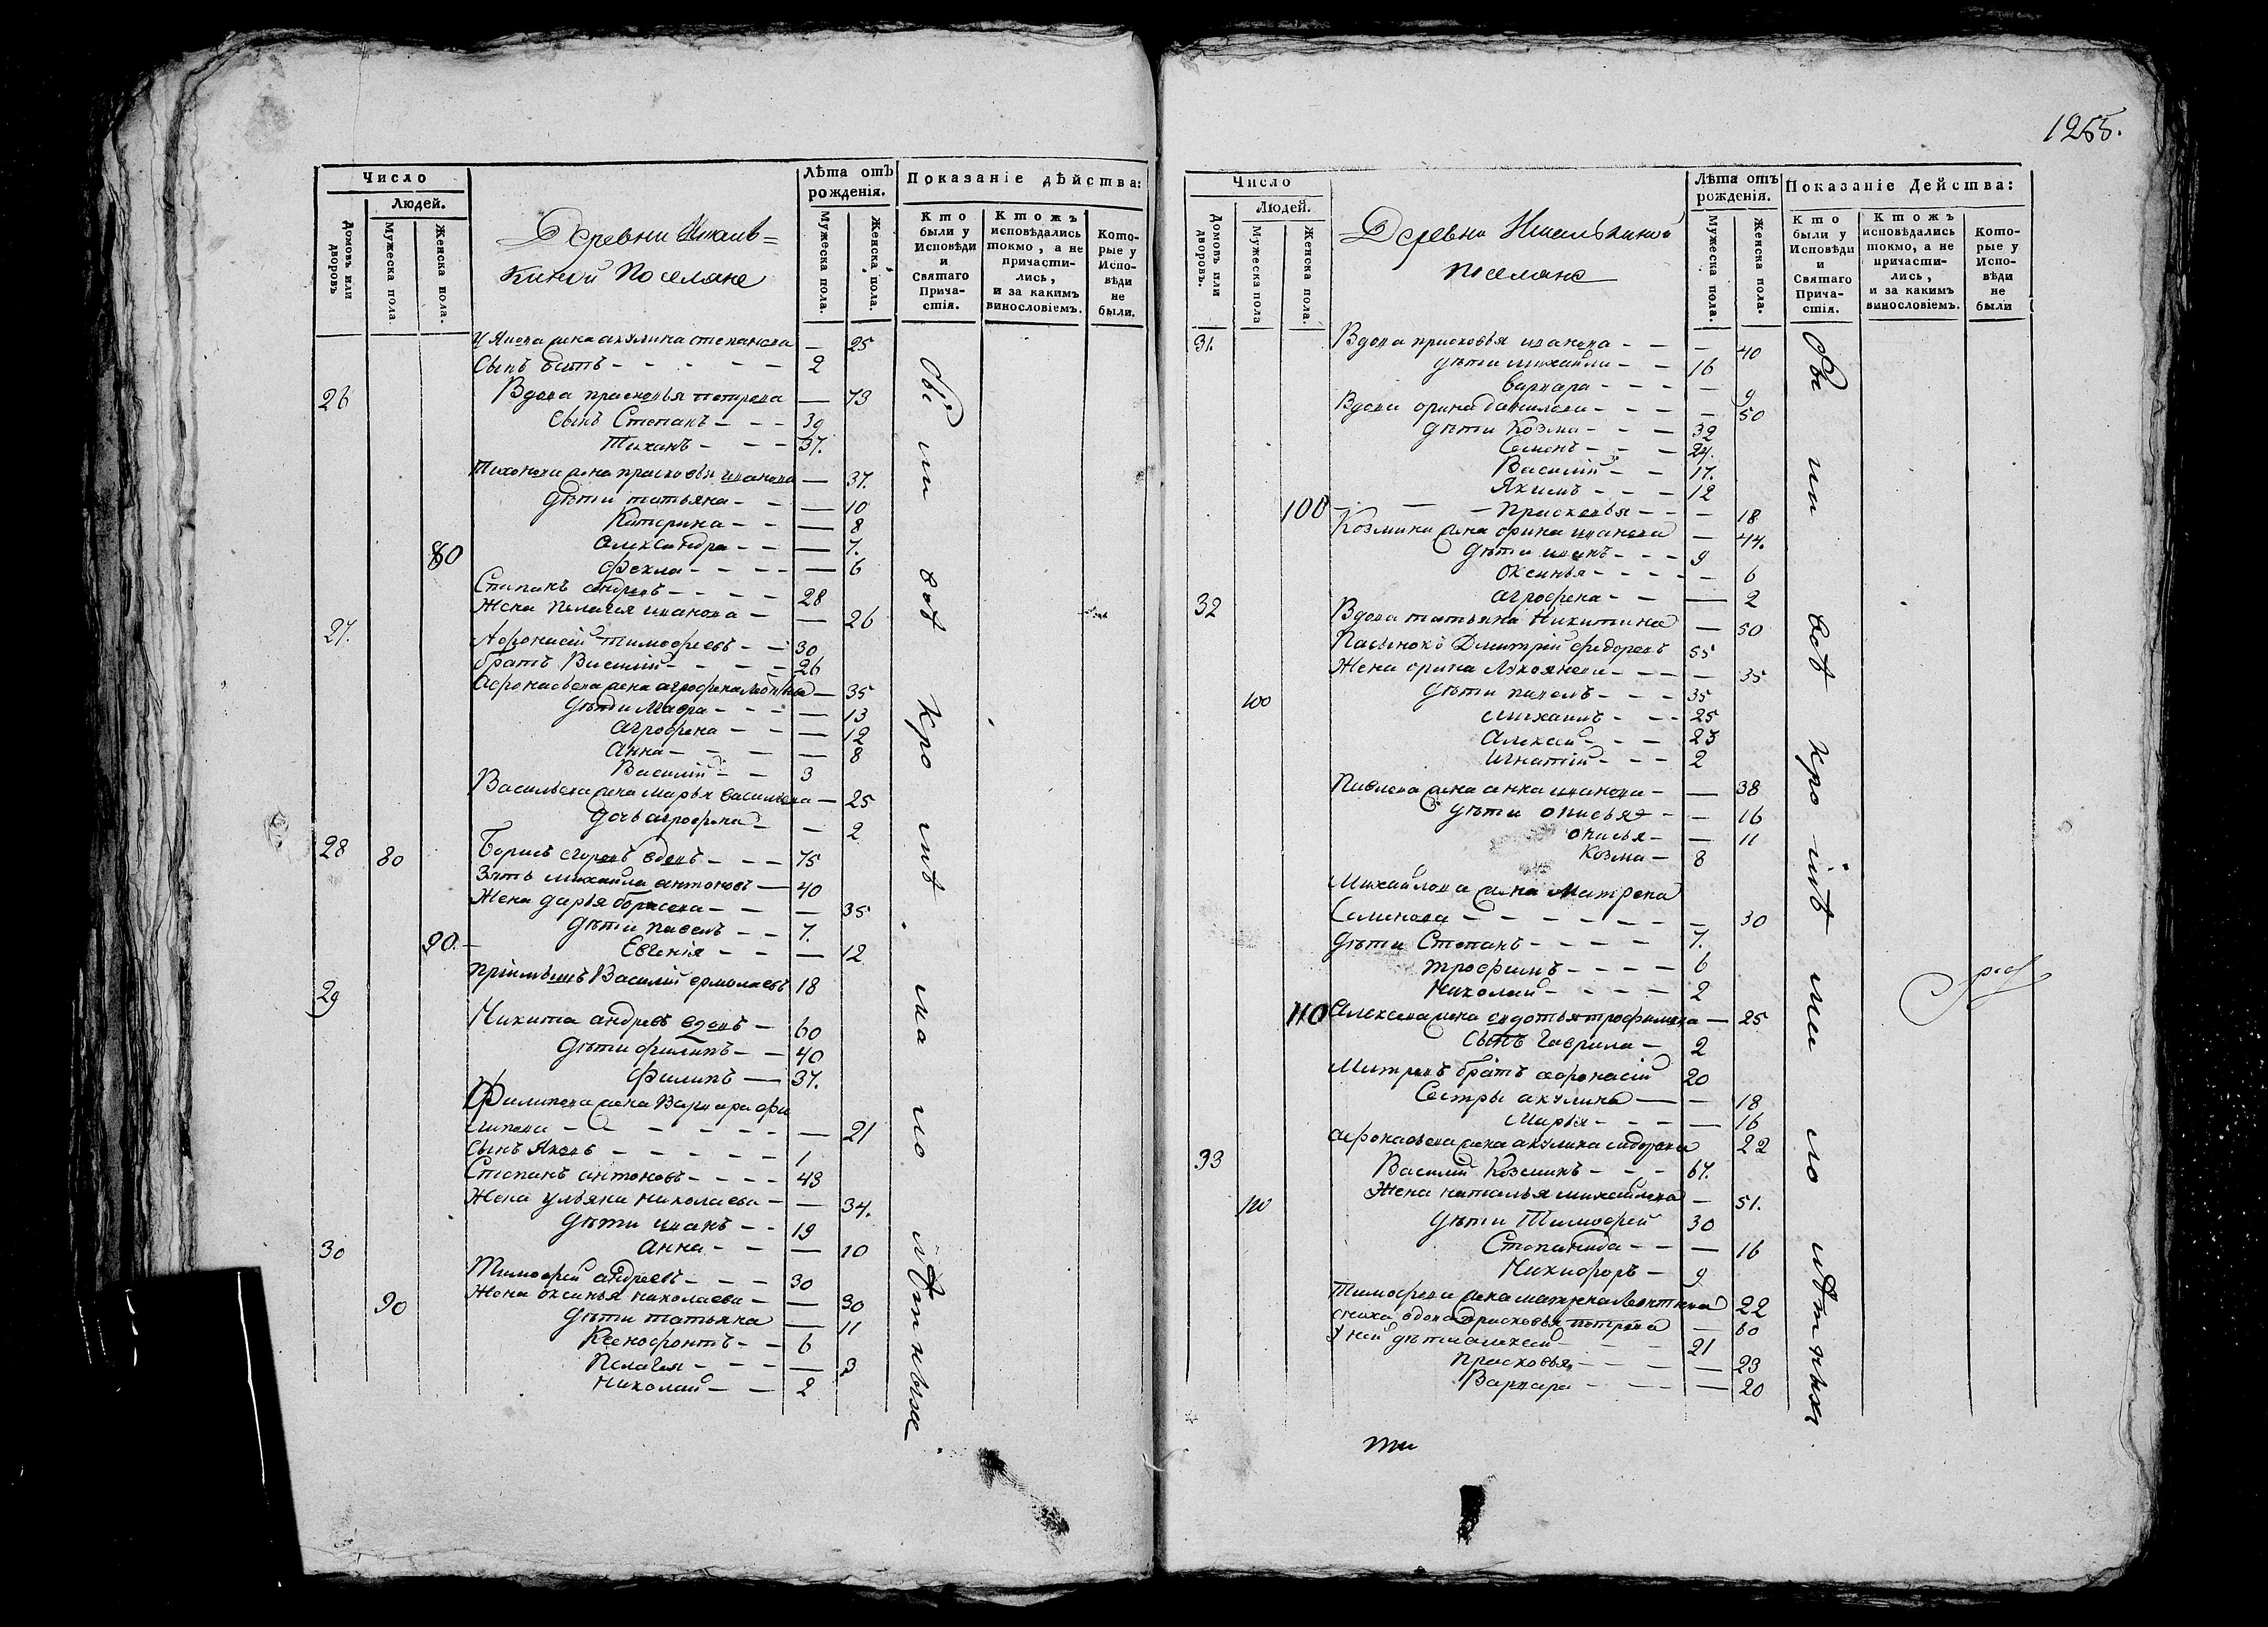 1255.
Число
Людей.
Домовъ или дворовъ
Мужеска пола.
Женска пола.
Деревни
киной Поселяне
Лѣта отъ рожденія.
Мужеска пола.
Женска пола.
Показаніе дѣйства:
Кто были у Исповѣди и Святаго Причастія.
Ктожъ исповѣдались токмо, а не причастились, и за какимъ винословіемъ.
Которые у Исповѣди не были.
жена акулина степанова — 25
Сынъ 2
26 Вдова прасковья петрова — 73
Сынъ Степанъ 39
Тиханъ 37.
Тихонова жена прасковья иванова — 37.
дѣти татьяна — 10
Катерина — 8
александра — 7.
80 фекла — 6
Степанъ андреевъ 28
Жена Пелагея иванова — 26
27. Афонасій тимофеевъ 30
братъ Василій 26
Афонасьева жена агрофена — 35
дѣти Мавра — 13
агрофена — 12
анна — 8
Василій 3
Васильева жена марья васильева — 25
дочь агрофена — 2
28 80 Борисъ егоровъ вдовъ 75
Зять михаила антоновъ 40
Жена дарья борисова — 35
дѣти павелъ 7.
90. Евгенія — 12
пріимышъ Василій ермолаевъ 18
29 Никита андреевъ вдовъ 60
дѣти филипъ 40
филипъ 37.
Филипова жена Варвара фи
липова — 21
Сынъ Яковъ 1
Степанъ антоновъ 43
Жена ульяна николаева — 34.
дѣти иванъ 19
анна — 10
30 Тимофей андреевъ 30
90 Жена оксинья николаева — 30
дѣти татьяна — 11
Ксенофонтъ 6
Пелагея — 3
Николай 2
Число
Людей.
Домовъ или дворовъ.
Мужеска пола
Женска пола.
Деревни
поселяне
Лѣта отъ рожденія.
Мужеска пола.
Женска пола.
Показаніе Действа:
Кто были у Исповѣди и Святаго Причастія.
Ктожъ исповѣдались токмо, а не причастились, и за какимъ винословіемъ.
Которые у Исповѣди не были
31. Вдова прасковья иванова — 40
дѣти михаила 16
варвара — 9
Вдова орина данилова — 50
дѣти Козма 32
Семенъ 24.
Василій 17.
Якимъ 12
100 Прасковья — 18
Козмина жена орина иванова — 44.
дѣти иванъ 9
Оксинья — 6
агрофена — 2
32 Вдова татьяна Никитина — 50
Пасынокъ Димитрій федоровъ 55
Жена орина — 35
100 дѣти павелъ 35
михаилъ 25
Алексей 23
Игнатій 2
Павлова жена анна иванова — 38
дѣти — 16
— 11
Козма 8
Михайлова жена Матрена
Семенова — 30
дѣти Степанъ 7.
трофимъ 6
Николай 2
110 Алексеева жена авдотья трофимова — 25
Сынъ Гаврила 2
братъ афонасій 20
Сестры акулина — 18
Марья — 16
афонасьева жена акулина сидорова 22
33 Василій Козминъ 67.
110 Жена наталья михайлова — 51.
дѣти Тимофей 30
Степанида — 16
Никифоръ 9
Тимофеева жена матрена 22
сноха вдова прасковья петрова — 60
у ней дѣти алексей 21
прасковья — 23
Варвара — 20
ти